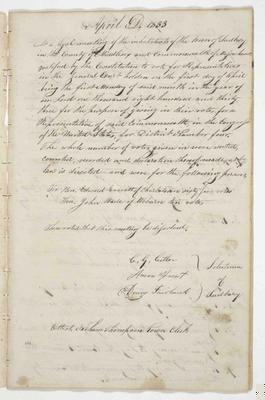 April 1st 1833
At a legal meeting of the inhabitants of the town of Sudbury
in the County of Middlesex and Commonwealth of Massachusetts
qualified by the Constitution to vote for Representatives
in the General Court holden on the first day of April
being the first Monday of said month in the year of
our Lord one thousand eight hundred and thirty
three for the purpose of giving in their votes for a
Representative of said Commonwealth, in the Congress
of the United States, for District Number four
The whole number of votes given in were sorted,
counted, recorded and declaration thereof made, as the
law is directed and were for the following persons
For Hon. Edward Everett of Charlestown sixty four votes
Hon. John Wade of Woburn ten votes
Then voted that this meeting be dissolved.
C. G. Cutler
Selectmen
of
Sudbury
Attest, Thompson Town Clerk